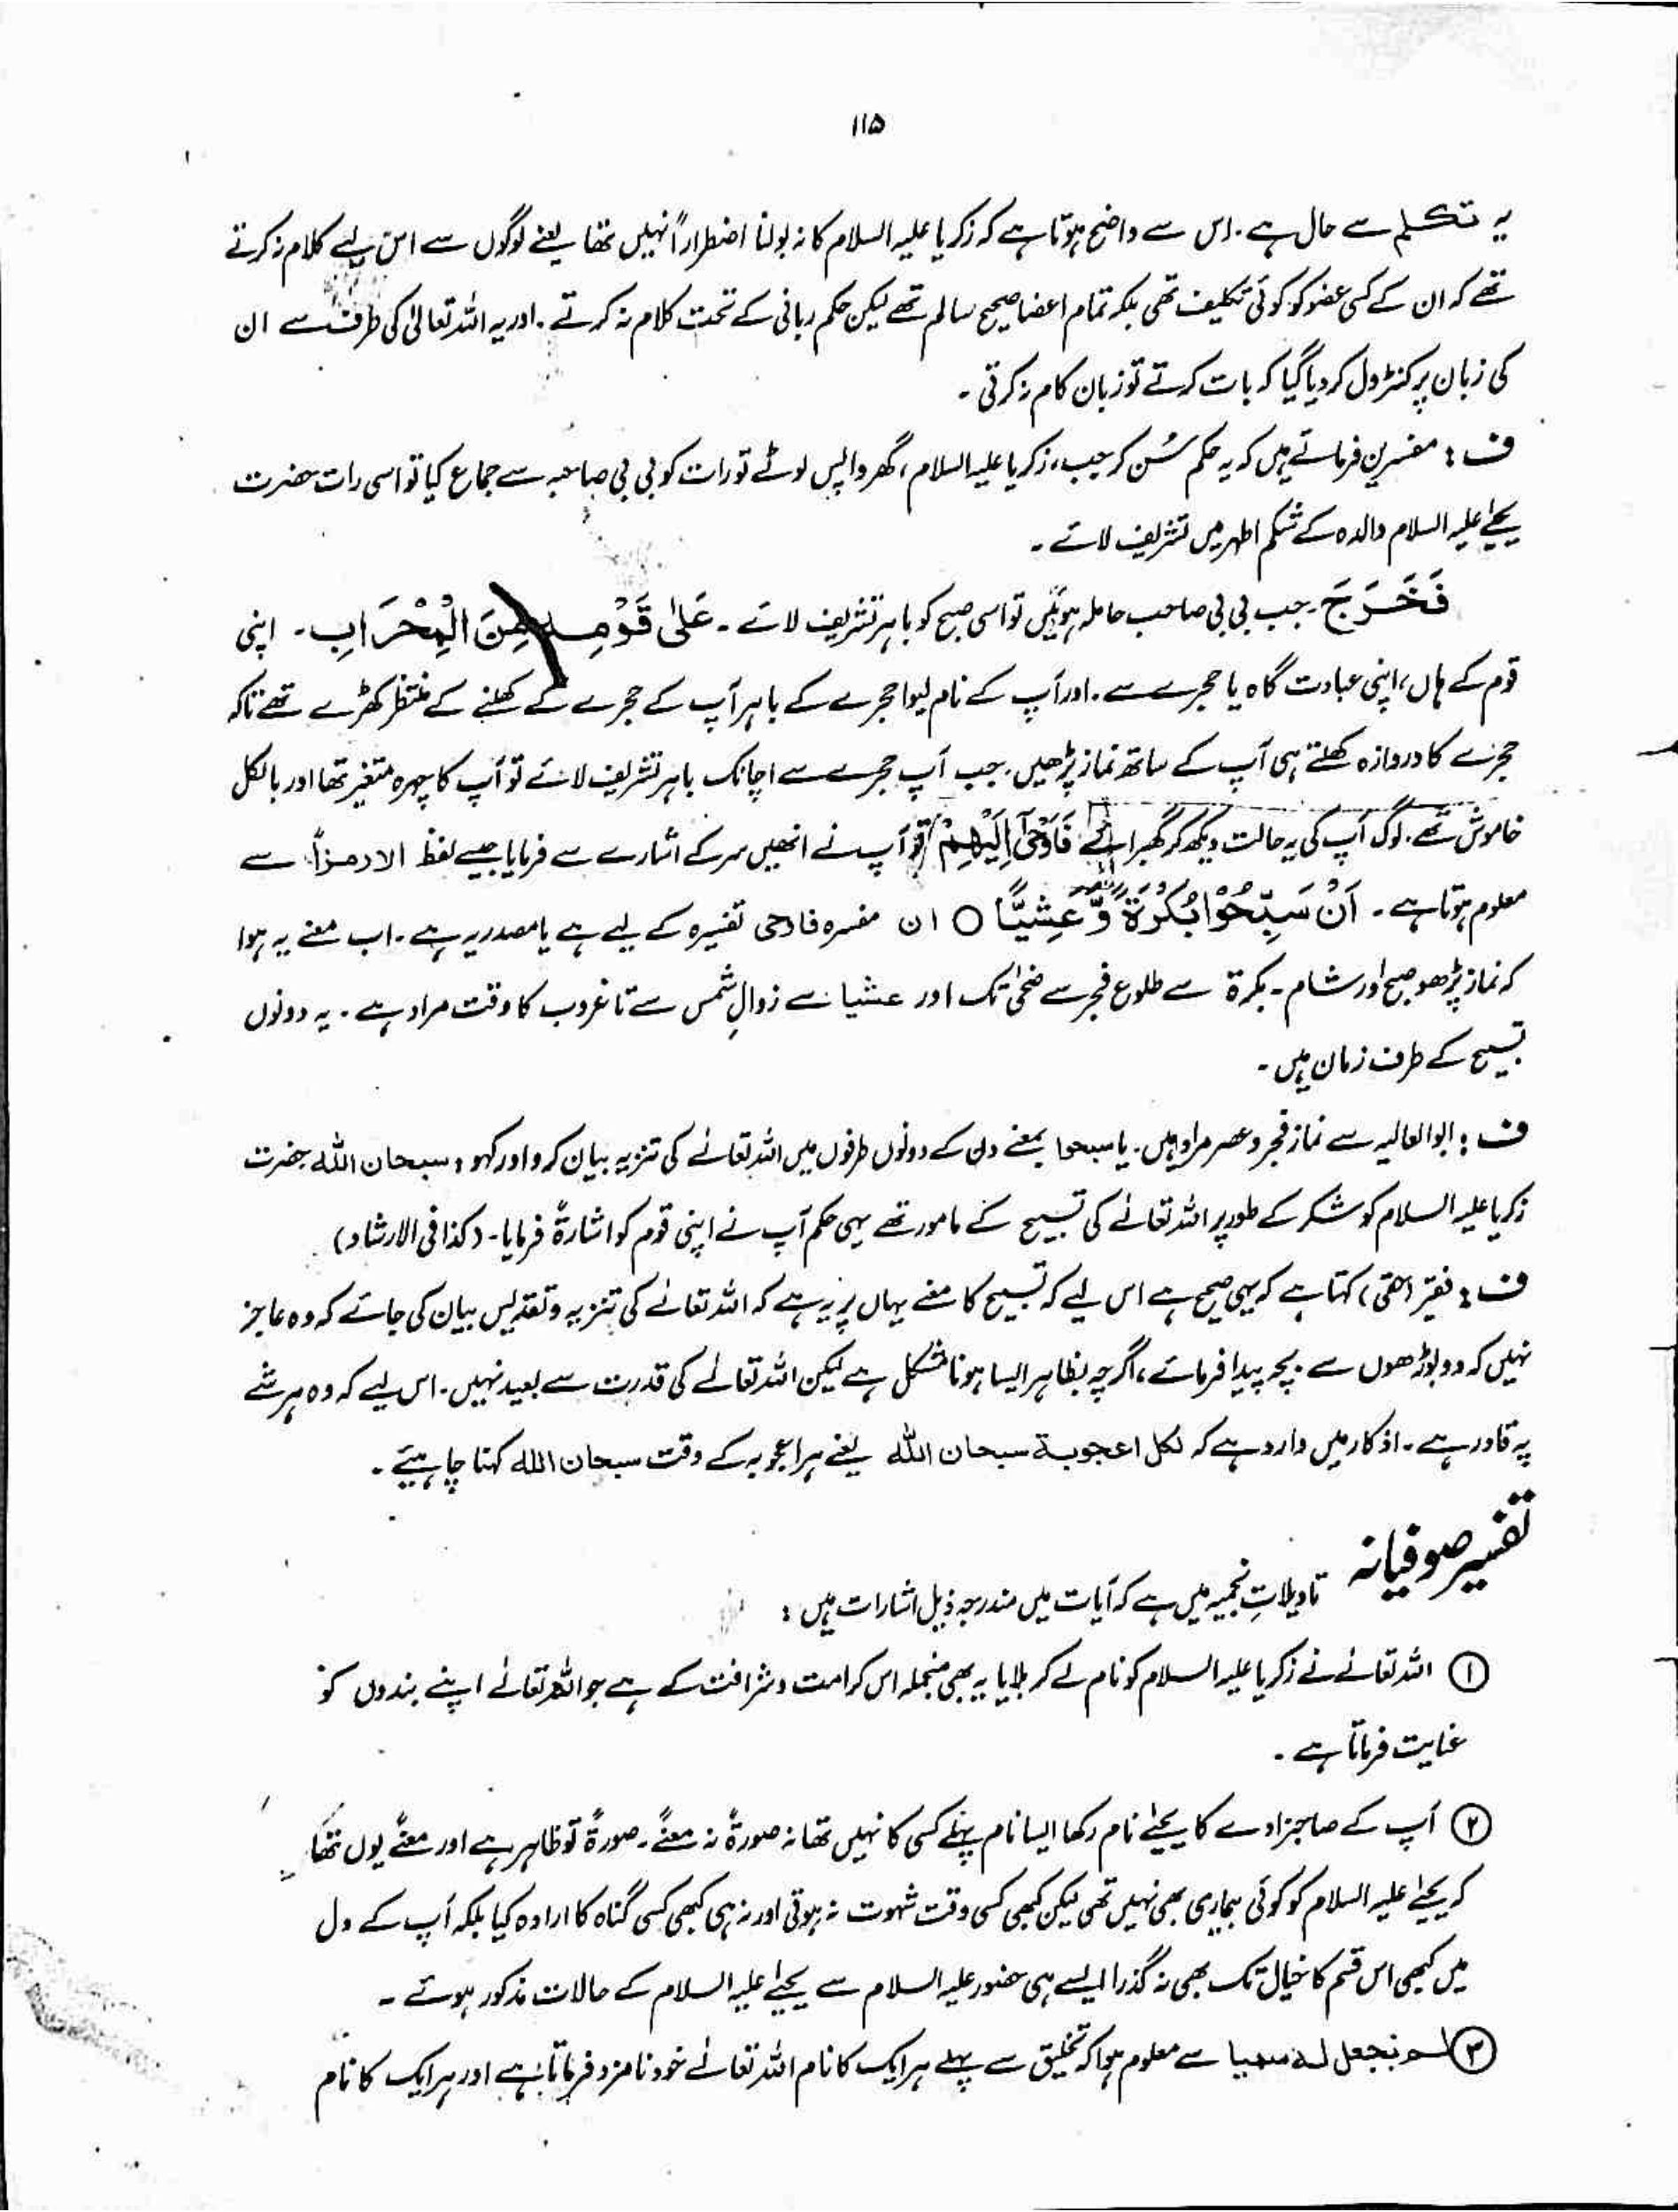 ۱۱۵
یہ تکلم سے حال ہے۔ اس سے واضح ہوتا ہے کہ زکریا علیہ السلام کا نہ بولنا اضطراراً نہیں تھا یعنے لوگوں سے اس لیے کلام نہ کرتے
تھے کہ ان کے کسی عضو کو کوئی تکلیف تھی بلکہ تمام اعضا صحیح سالم تھے لیکن حکم ربانی کے تحت کلام نہ کرتے۔ اور یہ اللہ تعالیٰ کی طرف سے ان
کی زبان پر کنٹرول کر دیا گیا کہ بات کرتے تو زبان کام نہ کرتی۔
ف: مفسرین فرماتے ہیں کہ یہ حکم سُن کر جب، زکریا علیہ السلام، گھر واپس لوٹے تو رات کو بی بی صاحبہ سے جماع کیا تو اسی رات حضرت
یحییٰ علیہ السلام والدہ کے شکم اطہر میں تشریف لائے۔
فَخَرَجَ۔ جب بی بی صاحب حاملہ ہوئیں تو اسی صبح کو باہر تشریف لائے۔ عَلٰى قَوْمِهٖ مِنَ الْمِحْرَابِ۔ اپنی
قوم کے ہاں، اپنی عبادت گاہ یا حجرے سے۔ اور آپ کے نام لیوا حجرے کے باہر آپ کے حجرے کے کھلنے کے منتظر کھڑے تھے تاکہ
حجرے کا دروازہ کھلتے ہی آپ کے ساتھ نماز پڑھیں۔ جب آپ حجرے سے اچانک باہر تشریف لائے تو آپ کا چہرہ متغیر تھا اور بالکل
خاموش تھے۔ لوگ آپ کی یہ حالت دیکھ کر گھبرائے فَاَوْحٰٓى اِلَيْهِمْ تو آپ نے انھیں سر کے اشارے سے فرمایا جیسے لفظ الا رمزاً سے
معلوم ہوتا ہے۔ اَنْ سَبِّحُوْا بُكْرَةً وَّعَشِيًّا ○ ان مفسرہ فاوحی تفسیرہ کے لیے ہے یا مصدریہ ہے۔ اب معنے یہ ہوا
کہ نماز پڑھو صبح اور شام۔ بکرۃ سے طلوع فجر سے ضحیٰ تک اور عشیا سے زوالِ شمس سے تا غروب کا وقت مراد ہے۔ یہ دونوں
تسبیح کے ظرف زمان ہیں۔
ف: ابو العالیہ سے نماز فجر و عصر مراد ہیں۔ یا سبحوا بمعنے دن کے دونوں طرفوں میں اللہ تعالےٰ کی تنزیہ بیان کرو اور کہو: سبحان اللہ حضرت
زکریا علیہ السلام کو شکر کے طور پر اللہ تعالےٰ کی تسبیح کے مامور تھے یہی حکم آپ نے اپنی قوم کو اشارۃً فرمایا۔ (کذا فی الارشاد)
ف: فقیر (حقی) کہتا ہے کہ یہی صحیح ہے اس لیے کہ تسبیح کا معنے یہاں پر یہ ہے کہ اللہ تعالےٰ کی تنزیہ و تقدیس بیان کی جائے کہ وہ عاجز
نہیں کہ دو بوڑھوں سے بچہ پیدا فرمائے، اگرچہ بظاہر ایسا ہونا مشکل ہے لیکن اللہ تعالےٰ کی قدرت سے بعید نہیں۔ اس لیے کہ وہ ہر شے
پہ قادر ہے۔ اذکار میں وارد ہے کہ لکل اعجوبۃ سبحان اللہ یعنے ہر اعجوبہ کے وقت سبحان اللہ کہنا چاہیئے۔
تفسیر صوفیانہ
تاویلاتِ نجمیہ میں ہے کہ آیات میں مندرجہ ذیل اشارات ہیں:
① اللہ تعالےٰ نے زکریا علیہ السلام کو نام لے کر بلایا یہ بھی منجملہ اس کرامت و شرافت کے ہے جو اللہ تعالےٰ اپنے بندوں کو
عنایت فرماتا ہے۔
② آپ کے صاحبزادے کا یحییٰ نام رکھا ایسا نام پہلے کسی کا نہیں تھا نہ صورۃً نہ معنےً۔ صورۃً تو ظاہر ہے اور معنےً یوں تھا
کہ یحییٰ علیہ السلام کو کوئی بیماری بھی نہیں تھی لیکن کبھی کسی وقت شہوت نہ ہوتی اور نہ ہی کبھی کسی گناہ کا ارادہ کیا بلکہ آپ کے دل
میں کبھی اس قسم کا خیال تک بھی نہ گذرا ایسے ہی حضور علیہ السلام سے یحییٰ علیہ السلام کے حالات مذکور ہوئے۔
③ لم نجعل لہ سمیا سے معلوم ہوا کہ تخلیق سے پہلے ہر ایک کا نام اللہ تعالےٰ خود نامزد فرماتا ہے اور ہر ایک کا نام